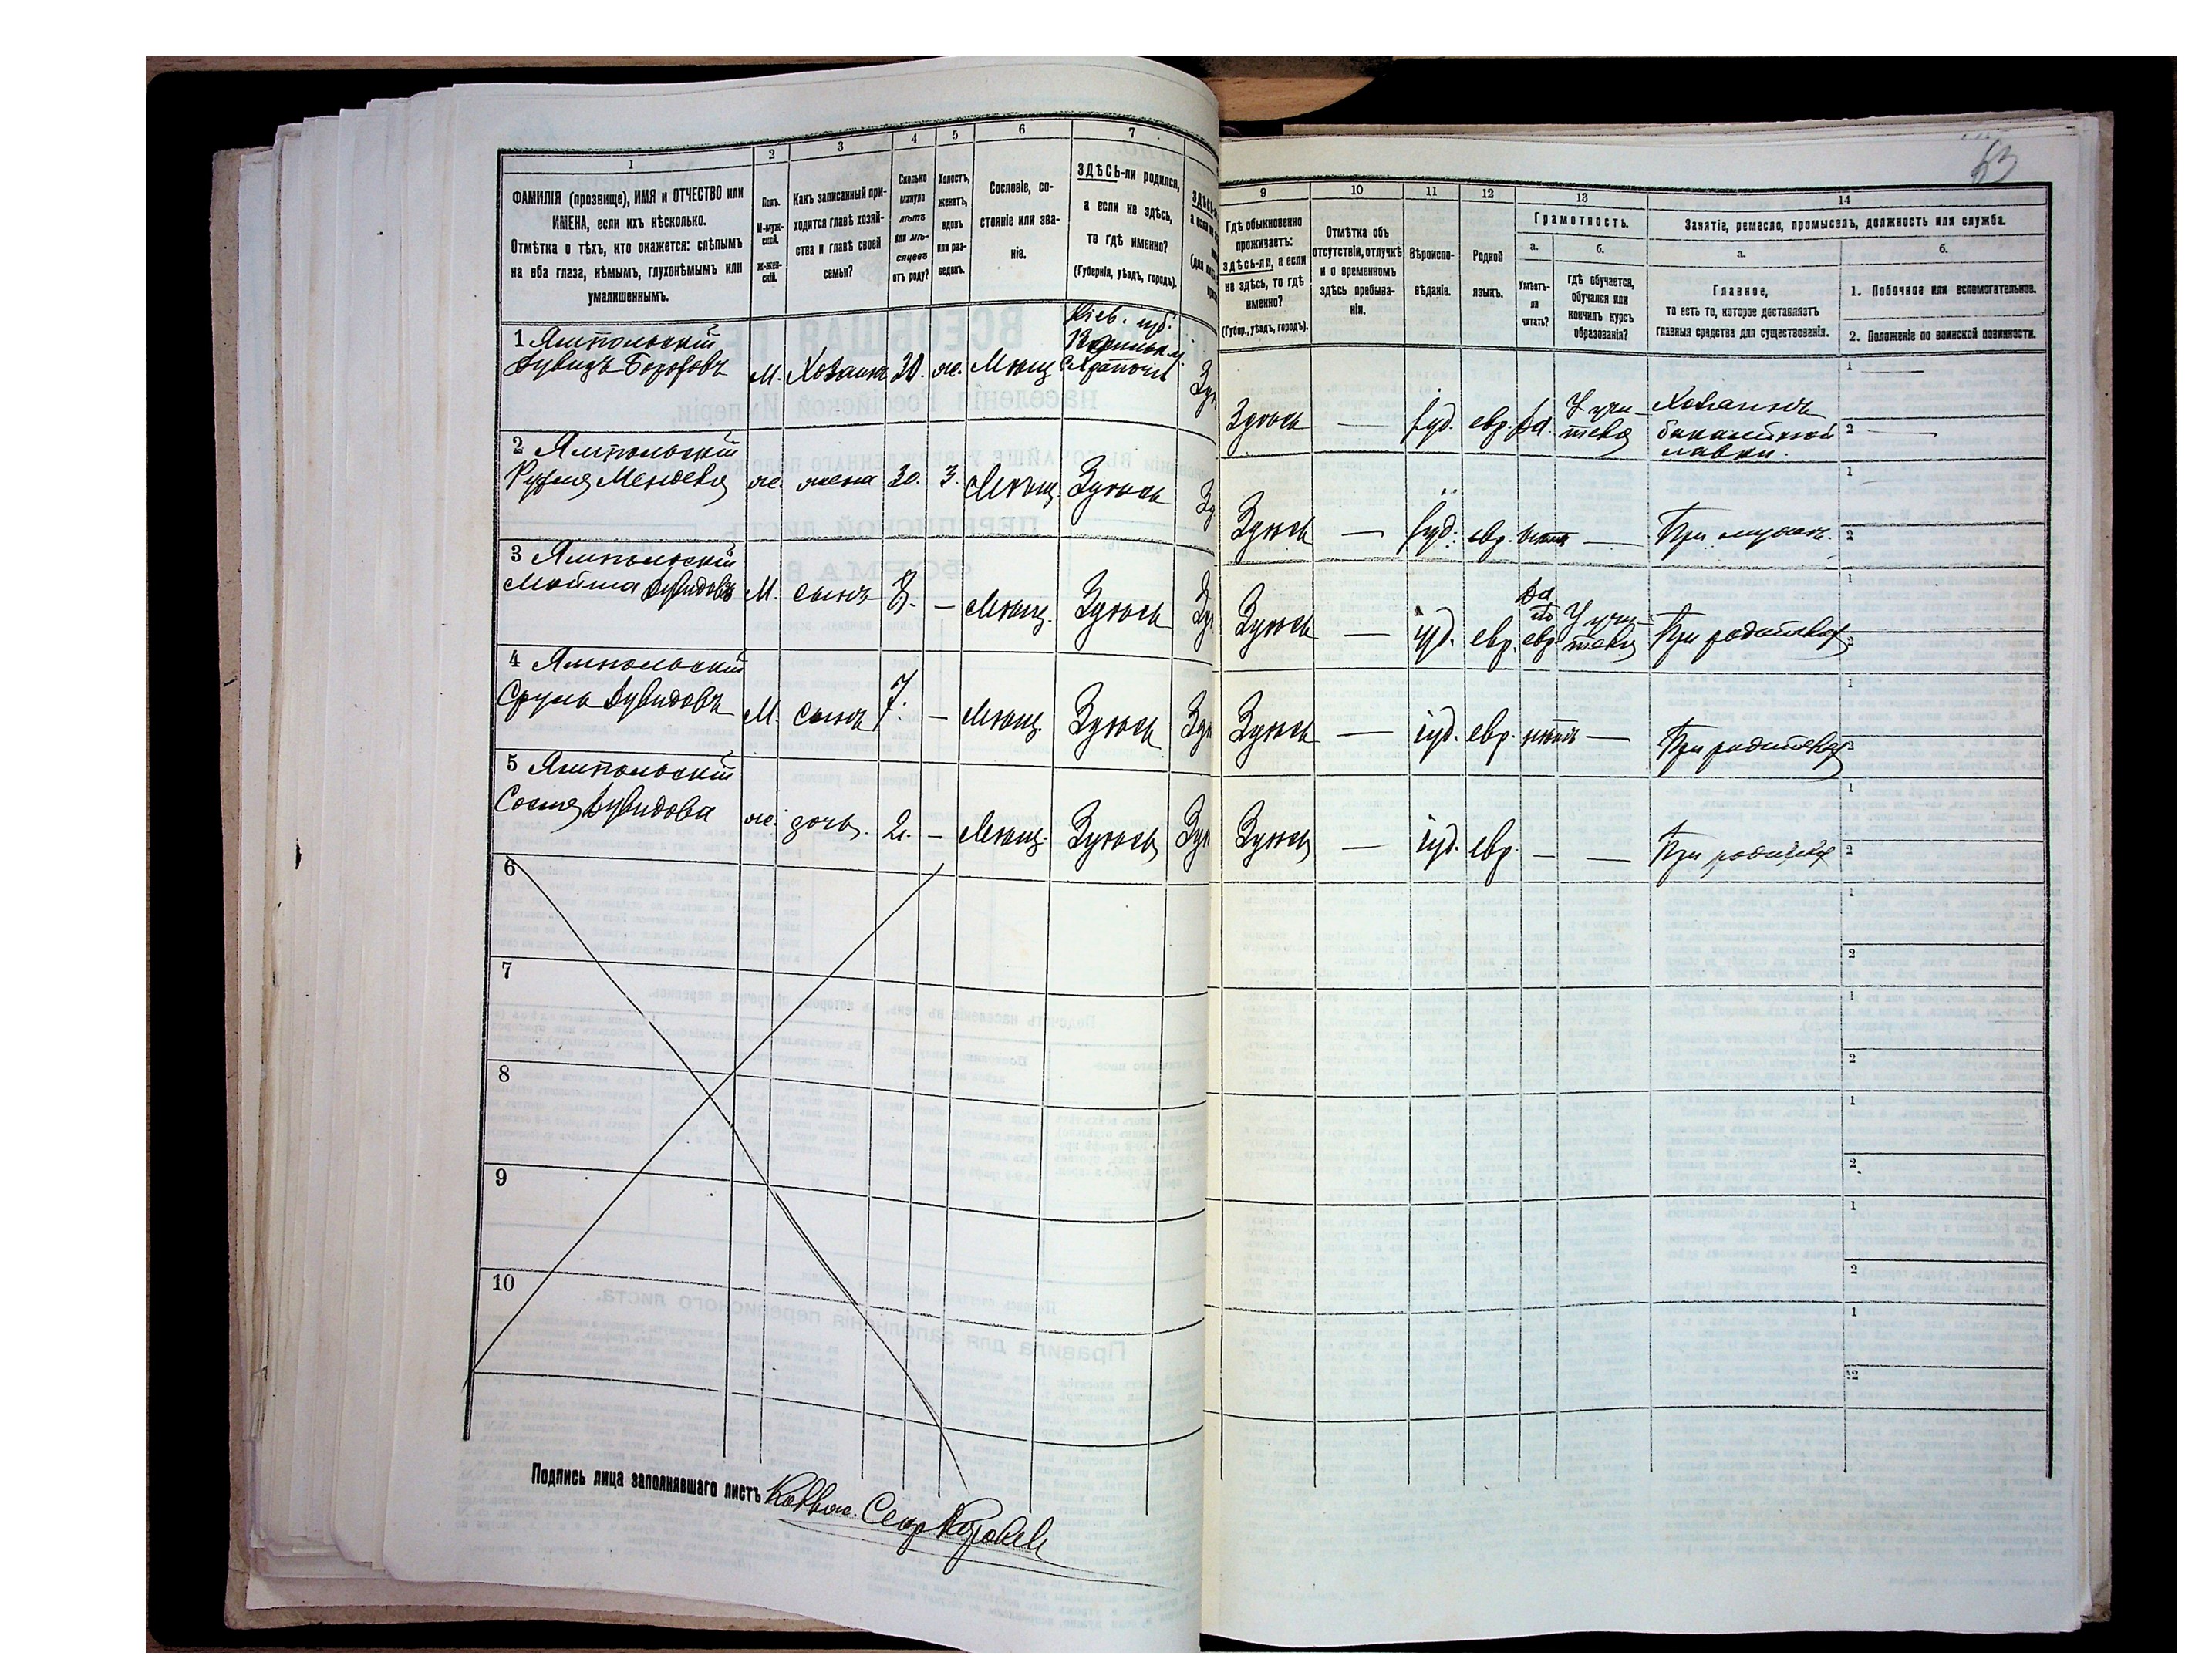 1
2
3
4
5
6
7
ФАМИЛІЯ (прозвище), ИМЯ и ОТЧЕСТВО или
ИМЕНА, если ихъ нѣсколько.
Отмѣтка о тѣхъ, кто окажется: слѣпымъ
на оба глаза, нѣмымъ, глухонѣмымъ или
умалишеннымъ.
Полъ.
М-муж-
ской.
Ж-жен-
скій.
Какъ записанный при-
ходится главѣ хозяй-
ства и главѣ своей
семьи?
Сколько
минуло
лѣтъ
или мѣ-
сяцевъ
отъ роду?
Холостъ,
женатъ,
вдовъ
или раз-
веденъ.
Сословіе, со-
стояніе или зва-
ніе.
ЗДѢСЬ-ли родился,
а если не здѣсь,
то гдѣ именно?
(Губернія, уѣздъ, городъ).
1 Ямпольскій
Дувидъ
М. Хозяинъ 30. ж. Мѣщ
Кіев. губ.
2 Ямпольскій
Менделя ж. жена 30. З. Мѣщ. Здѣсь
3 Ямпольскій
Мойша Дувидовъ М. сынъ 8. — Мѣщ. Здѣсь
4 Ямпольскій
Сруль Дувидовъ М. сынъ 7. — Мѣщ. Здѣсь
5 Ямпольскій
Дувидова ж. дочь. 2. — Мѣщ. Здѣсь
6
7
8
9
10
Подпись лица заполнявшаго листъ
53
9
10
11
12
13
14
Гдѣ обыкновенно
проживаетъ:
здѣсь-ли, а если
не здѣсь, то гдѣ
именно?
(Губер., уѣздъ, городъ).
Отмѣтка объ
отсутствіи, отлучкѣ
и о временномъ
здѣсь пребыва-
ніи.
Вѣроиспо-
вѣданіе.
Родной
языкъ.
Грамотность.
а.
Умѣетъ-
ли
читать?
б.
гдѣ обучается,
обучался или
кончилъ курсъ
образованія?
Занятіе, ремесло, промыселъ, должность или служба.
а.
Главное,
то есть то, которое доставляетъ
главныя средства для существованія.
б.
1. Побочное или вспомогательное.
2. Положеніе по воинской повинности.
Здѣсь — іуд. евр. Да.
У учи-
теля
Хозяинъ
бакалейной
лавки.
1 —
2 —
Здѣсь — іуд. евр. нѣтъ — При мужѣ.
1
2
Здѣсь — іуд. евр.
Да
по
евр
У учи-
теля
При родителях
1
2
Здѣсь — іуд. евр. нѣтъ — При родителях
1
2
Здѣсь — іуд. евр. — — При родителях
1
2
1
2
1
2
1
2
1
2
1
2